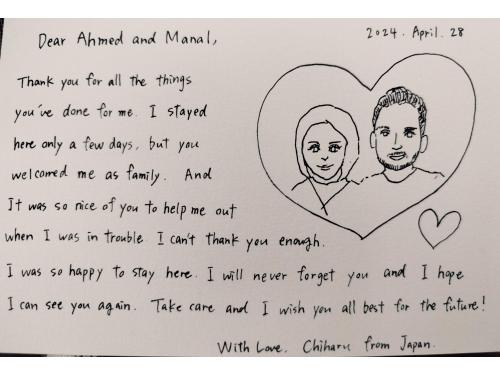 Dear Ahmed and Manal,
2024. April. 28
Thank you for all the things
you've done for me. I stayed
here only a few days, but you
welcomed me as family. And
It was so nice of you to help me out
when I was in trouble. I can't thank you enough.
I was so happy to stay here. I will never forget you and I hope
I can see you again. Take care and I wish you all best for the future!
With Love. Chiharu from Japan.